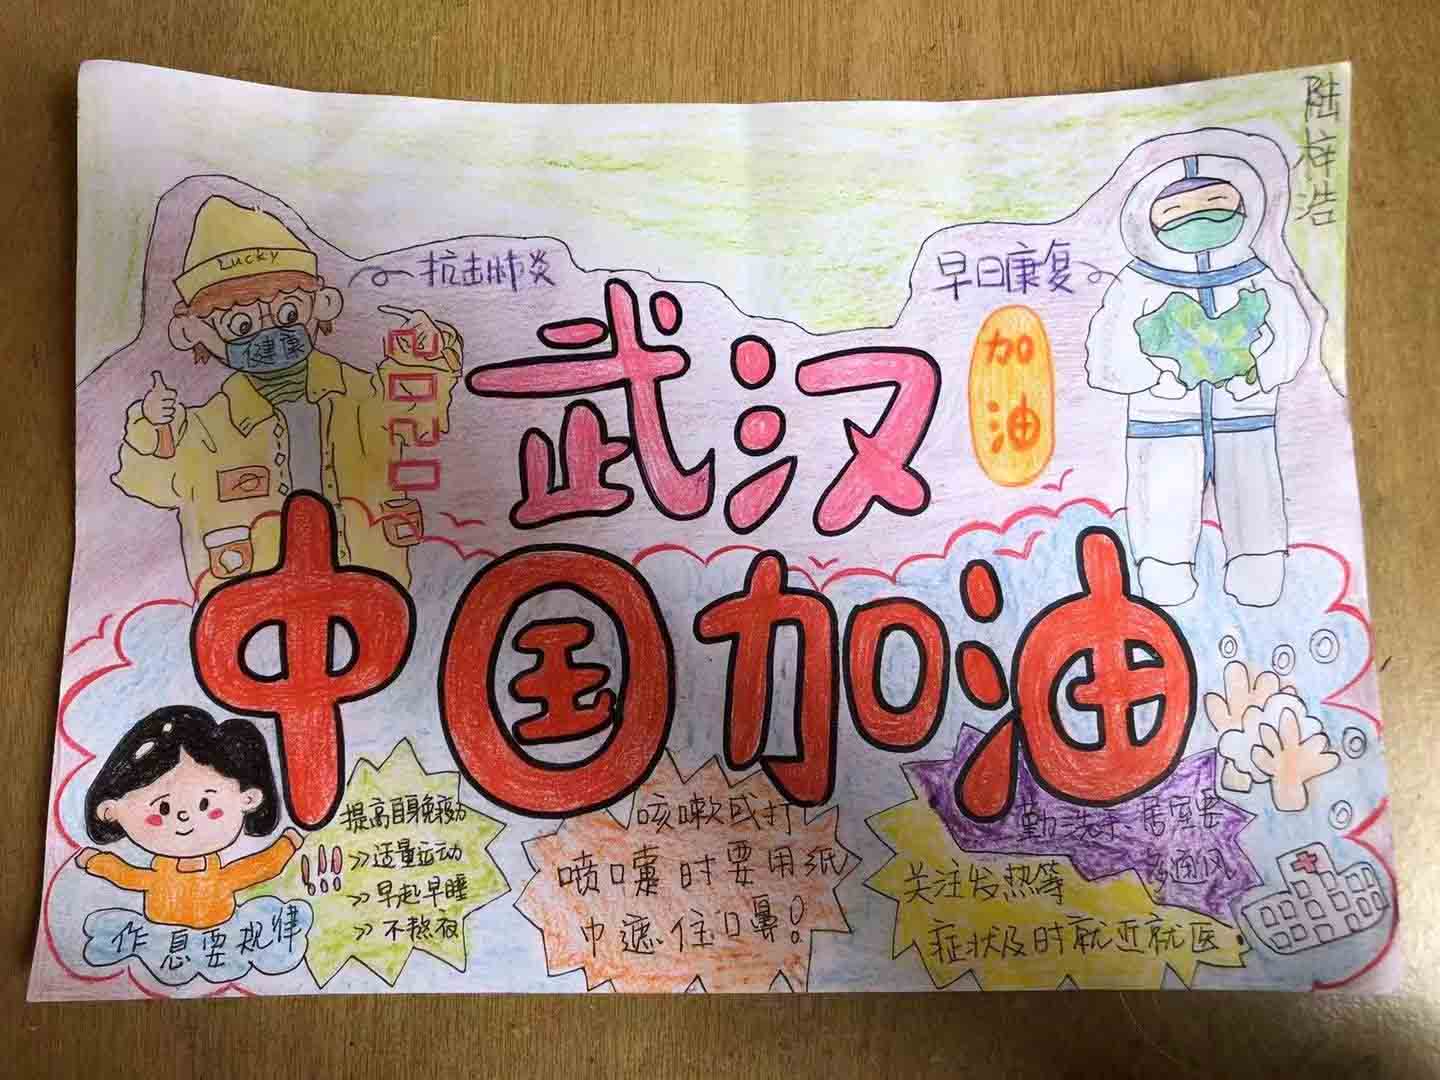 陆梓浩
Lucky
抗击肺炎
早日康复
健康
2020
武汉
加油
中国加油
提高自身免疫力
>>适量运动
>>早起早睡
>>不熬夜
作息要规律
咳嗽或打
喷嚏时要用纸
巾遮住口鼻！
勤洗手、居室要
多通风
关注发热等
症状及时就近就医